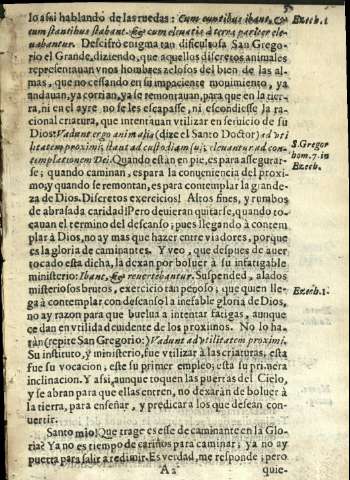 lo assi hablando de las ruedas: Cum euntibus ibant, &
cum stantibus stabant: & cum eleuatis à terra pariter ele-
uabantur. Descifrò enigma tan dificultosa San Grego-
rio el Grande, diziendo, que aquellos discretos animales
representauan vnos hombres zelosos del bien de las al-
mas, que no cessando en su impaciente mouimiento, ya
andauan, ya corrian, ya se remontauan, para que en la tier-
ra, ni en el ayre no se les escapasse, ni escondiesse la ra-
cional criatura, que intentauan vtilizar en seruicio de su
Dios: Vadunt ergo animalia (dize el Santo Doctor) ad vti
litatem proximi, stant ad custodiam sui, eleuantur ad con-
templationem Dei. Quando estàn en pie, es para assegurar-
se; quando caminan, es para la conueniencia del proxi-
mo; y quando se remontan, es para contemplar la grande-
za de Dios. Discretos exercicios! Altos fines, y rumbos
de abrasada caridad! Pero deuieran quitarse, quando to-
cauan el termino del descanso; pues llegando à contem
plar à Dios, no ay mas que hazer entre viadores, porque
es la gloria de caminantes. Y veo, que despues de auer
tocado esta dicha, la dexan por boluer à su infatigable
ministerio: Ibant, & reuertebantur. Suspended, alados
misteriosos brutos, exercicio tan penoso; que quien lle-
ga à contemplar con descanso la inefable gloria de Dios,
no ay razon para que buelua à intentar fatigas, aunque
ce dan en vtilidad euidente de los proximos. No lo ha-
ràn (repite San Gregorio:) Vadunt ad vtilitatem proximi.
Su instituto, y ministerio, fue vtilizar à las criaturas, esta
fue su vocacion, este su primer empleo, esta su primera
inclinacion. Y assi, aunque toquen las puertas del Cielo,
y se abran para que ellas entren, no dexaràn de boluer à
la tierra, para enseñar, y predicar a los que desean con-
uertir.
Santo mio! Que trage es esse de caminante en la Glo-
ria? Ya no es tiempo de cariños para caminar, ya no ay
puerta para salir a redimir. Es verdad, me responde; pero
A 2
quie-
Ezech. 1
S. Gregor
hom. 7. in
Ezech.
Ezech. 1.